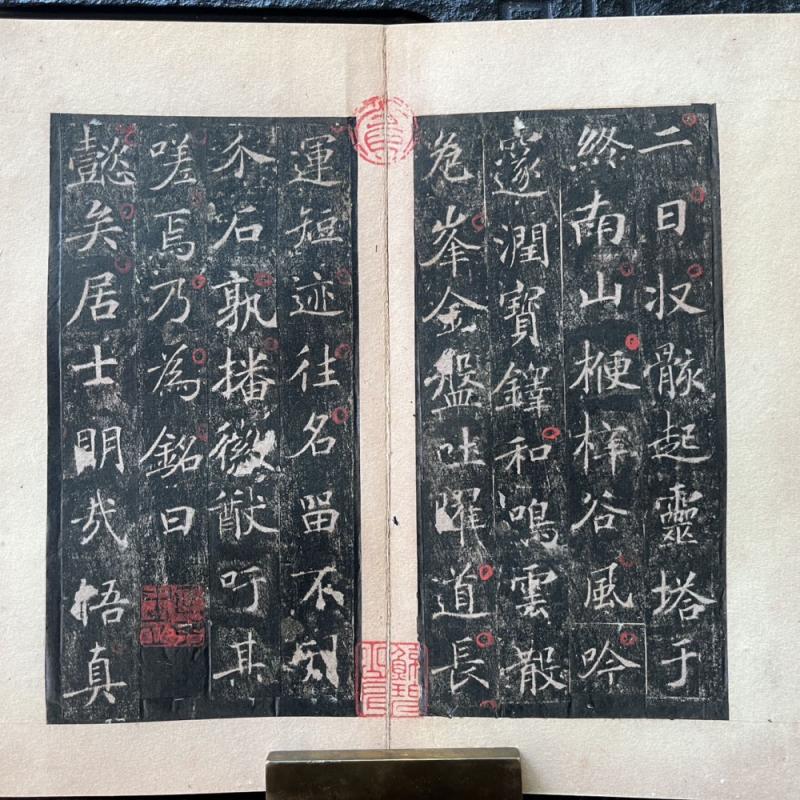 二日収骸起靈塔于
終南山楩梓谷風吟
邃潤寶鐸和鳴雲散
危峯金盤吐曜道長
運短迹往名留不刊
介石孰播徽猷吁其
嗟焉乃為銘曰
懿矣居士明哉悟真